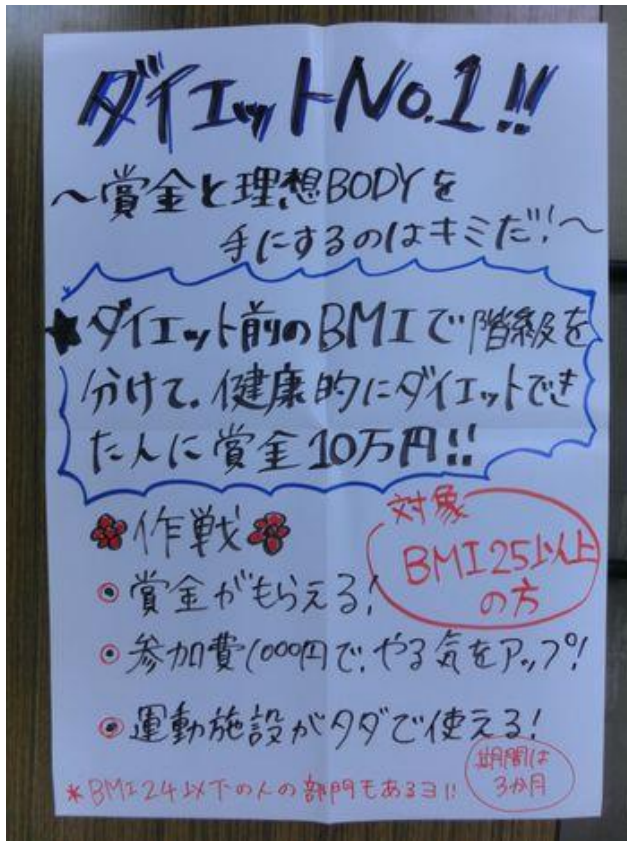 ダイエットNo.1!!
～賞金と理想BODYを
手にするのはキミだ!～
★ダイエット前のBMIで階級を
分けて。健康的にダイエットでき
た人に賞金10万円!!
作戦
対象
BMI25以上
の方
◉賞金がもらえる!
◉参加費1000円で、やる気をアップ!
◉運動施設がタダで使える!
期間は
3か月
*BMI24以下の人の部門もあるヨ!!